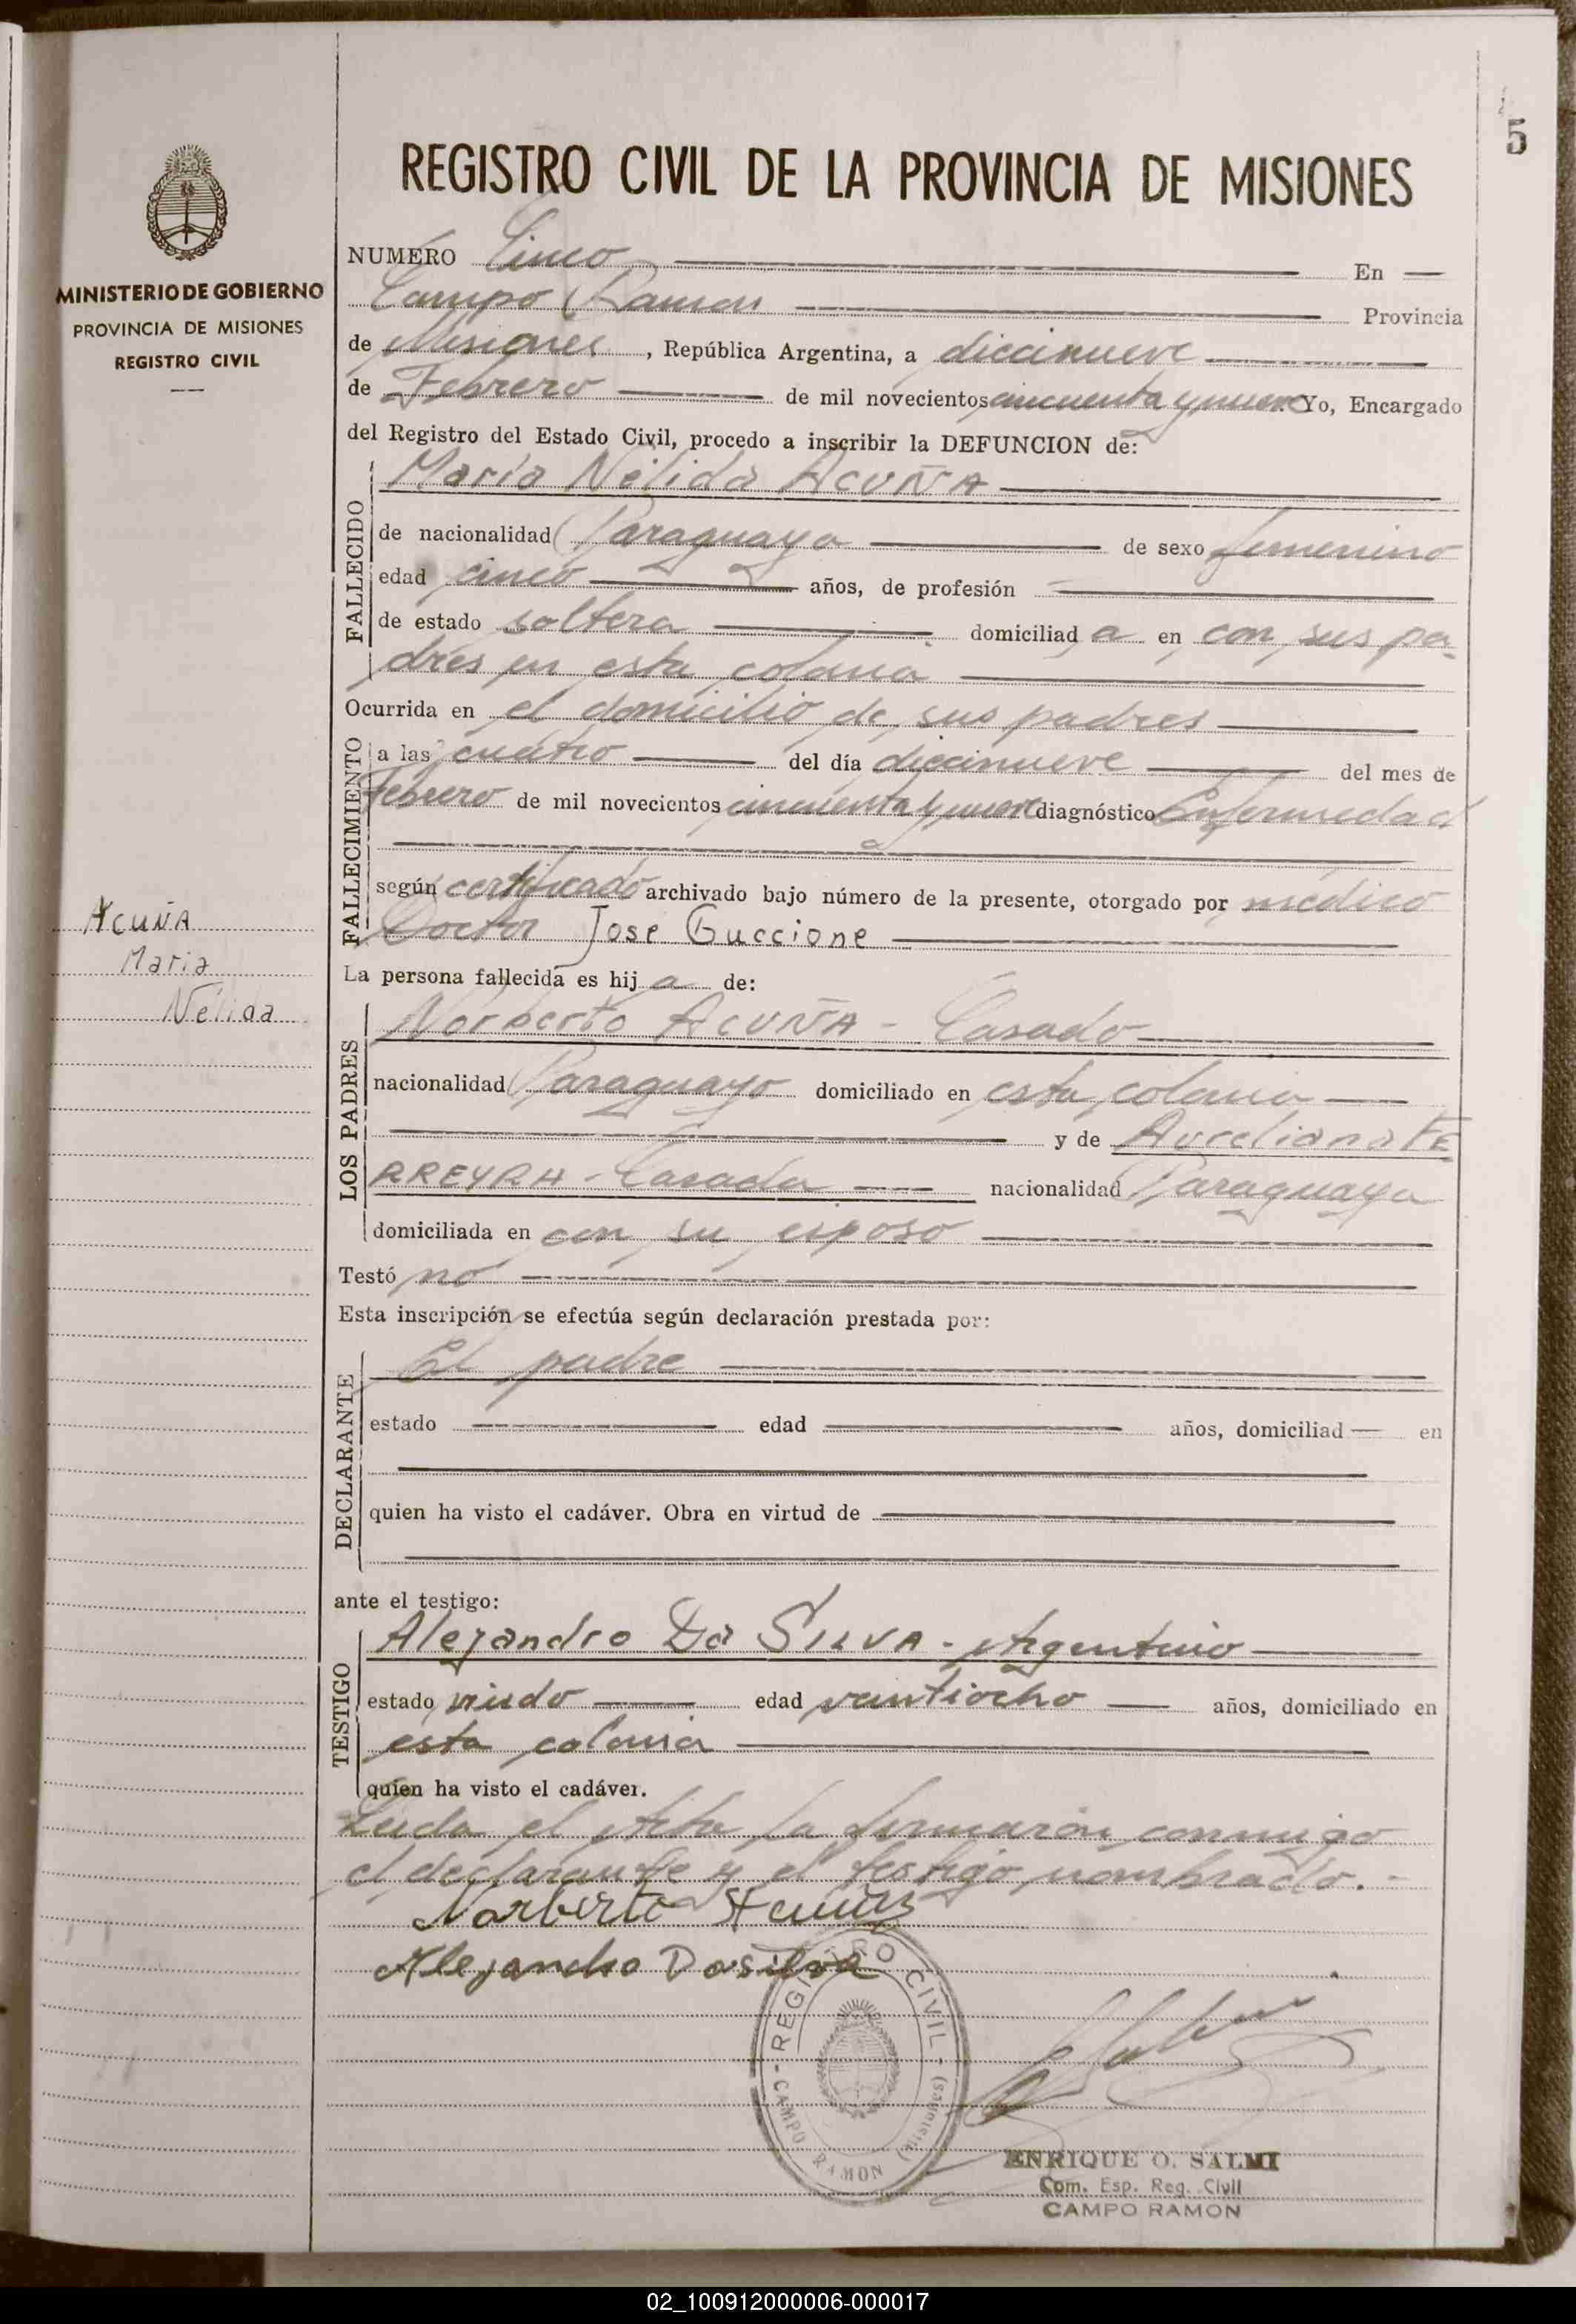 5
REGISTRO CIVIL DE LA PROVINCIA DE MISIONES
MINISTERIO DE GOBIERNO
PROVINCIA DE MISIONES
REGISTRO CIVIL
NUMERO Cinco En
Campo Ramon Provincia
de Misiones, República Argentina, a diecinueve
de Febrero de mil novecientos cincuenta y nueve Yo, Encargado
del Registro del Estado Civil, procedo a inscribir la DEFUNCION de:
FALLECIDO
Maria Nélida ACUÑA
de nacionalidad Paraguaya de sexo femenino
edad cinco años, de profesión
de estado soltera domiciliad a en con sus pa
dres en esta colonia
FALLECIMIENTO
Ocurrida en el domicilio de sus padres
a las cuatro del día diecinueve del mes de
Febrero de mil novecientos cincuenta y nueve diagnóstico Enfermedad
según certificado archivado bajo número de la presente, otorgado por médico
Doctor Jose Guccione
ACUÑA
Maria
Nélida
La persona fallecida es hij a de:
LOS PADRES
Norberto ACUÑA - Casado
nacionalidad Paraguayo domiciliado en esta colonia
y de Aureliana FE
RREYRA - Casada nacionalidad Paraguaya
domiciliada en con su esposo
Testó no
Esta inscripción se efectúa según declaración prestada por:
DECLARANTE
El padre
estado edad años, domiciliad en
quien ha visto el cadáver. Obra en virtud de
ante el testigo:
TESTIGO
Alejandro Da SILVA - Argentino
estado viudo edad veintiocho años, domiciliado en
esta colonia
quien ha visto el cadáver.
Leida el Acta la firmaron conmigo
el declarante y el testigo nombrado.-
Norberto Acuña
Alejandro Dasilva
REGISTRO CIVIL - CAMPO RAMON (Misiones) -
ENRIQUE O. SALMI
Com. Esp. Reg. Civil
CAMPO RAMON
02_100912000006-000017